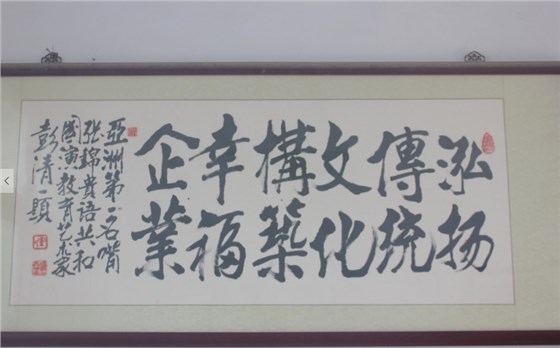 泓扬
傳统
文化
構築
幸福
企業
亞洲第一名嘴
張錦贵语共和
國演教育艺术家
彭清一題